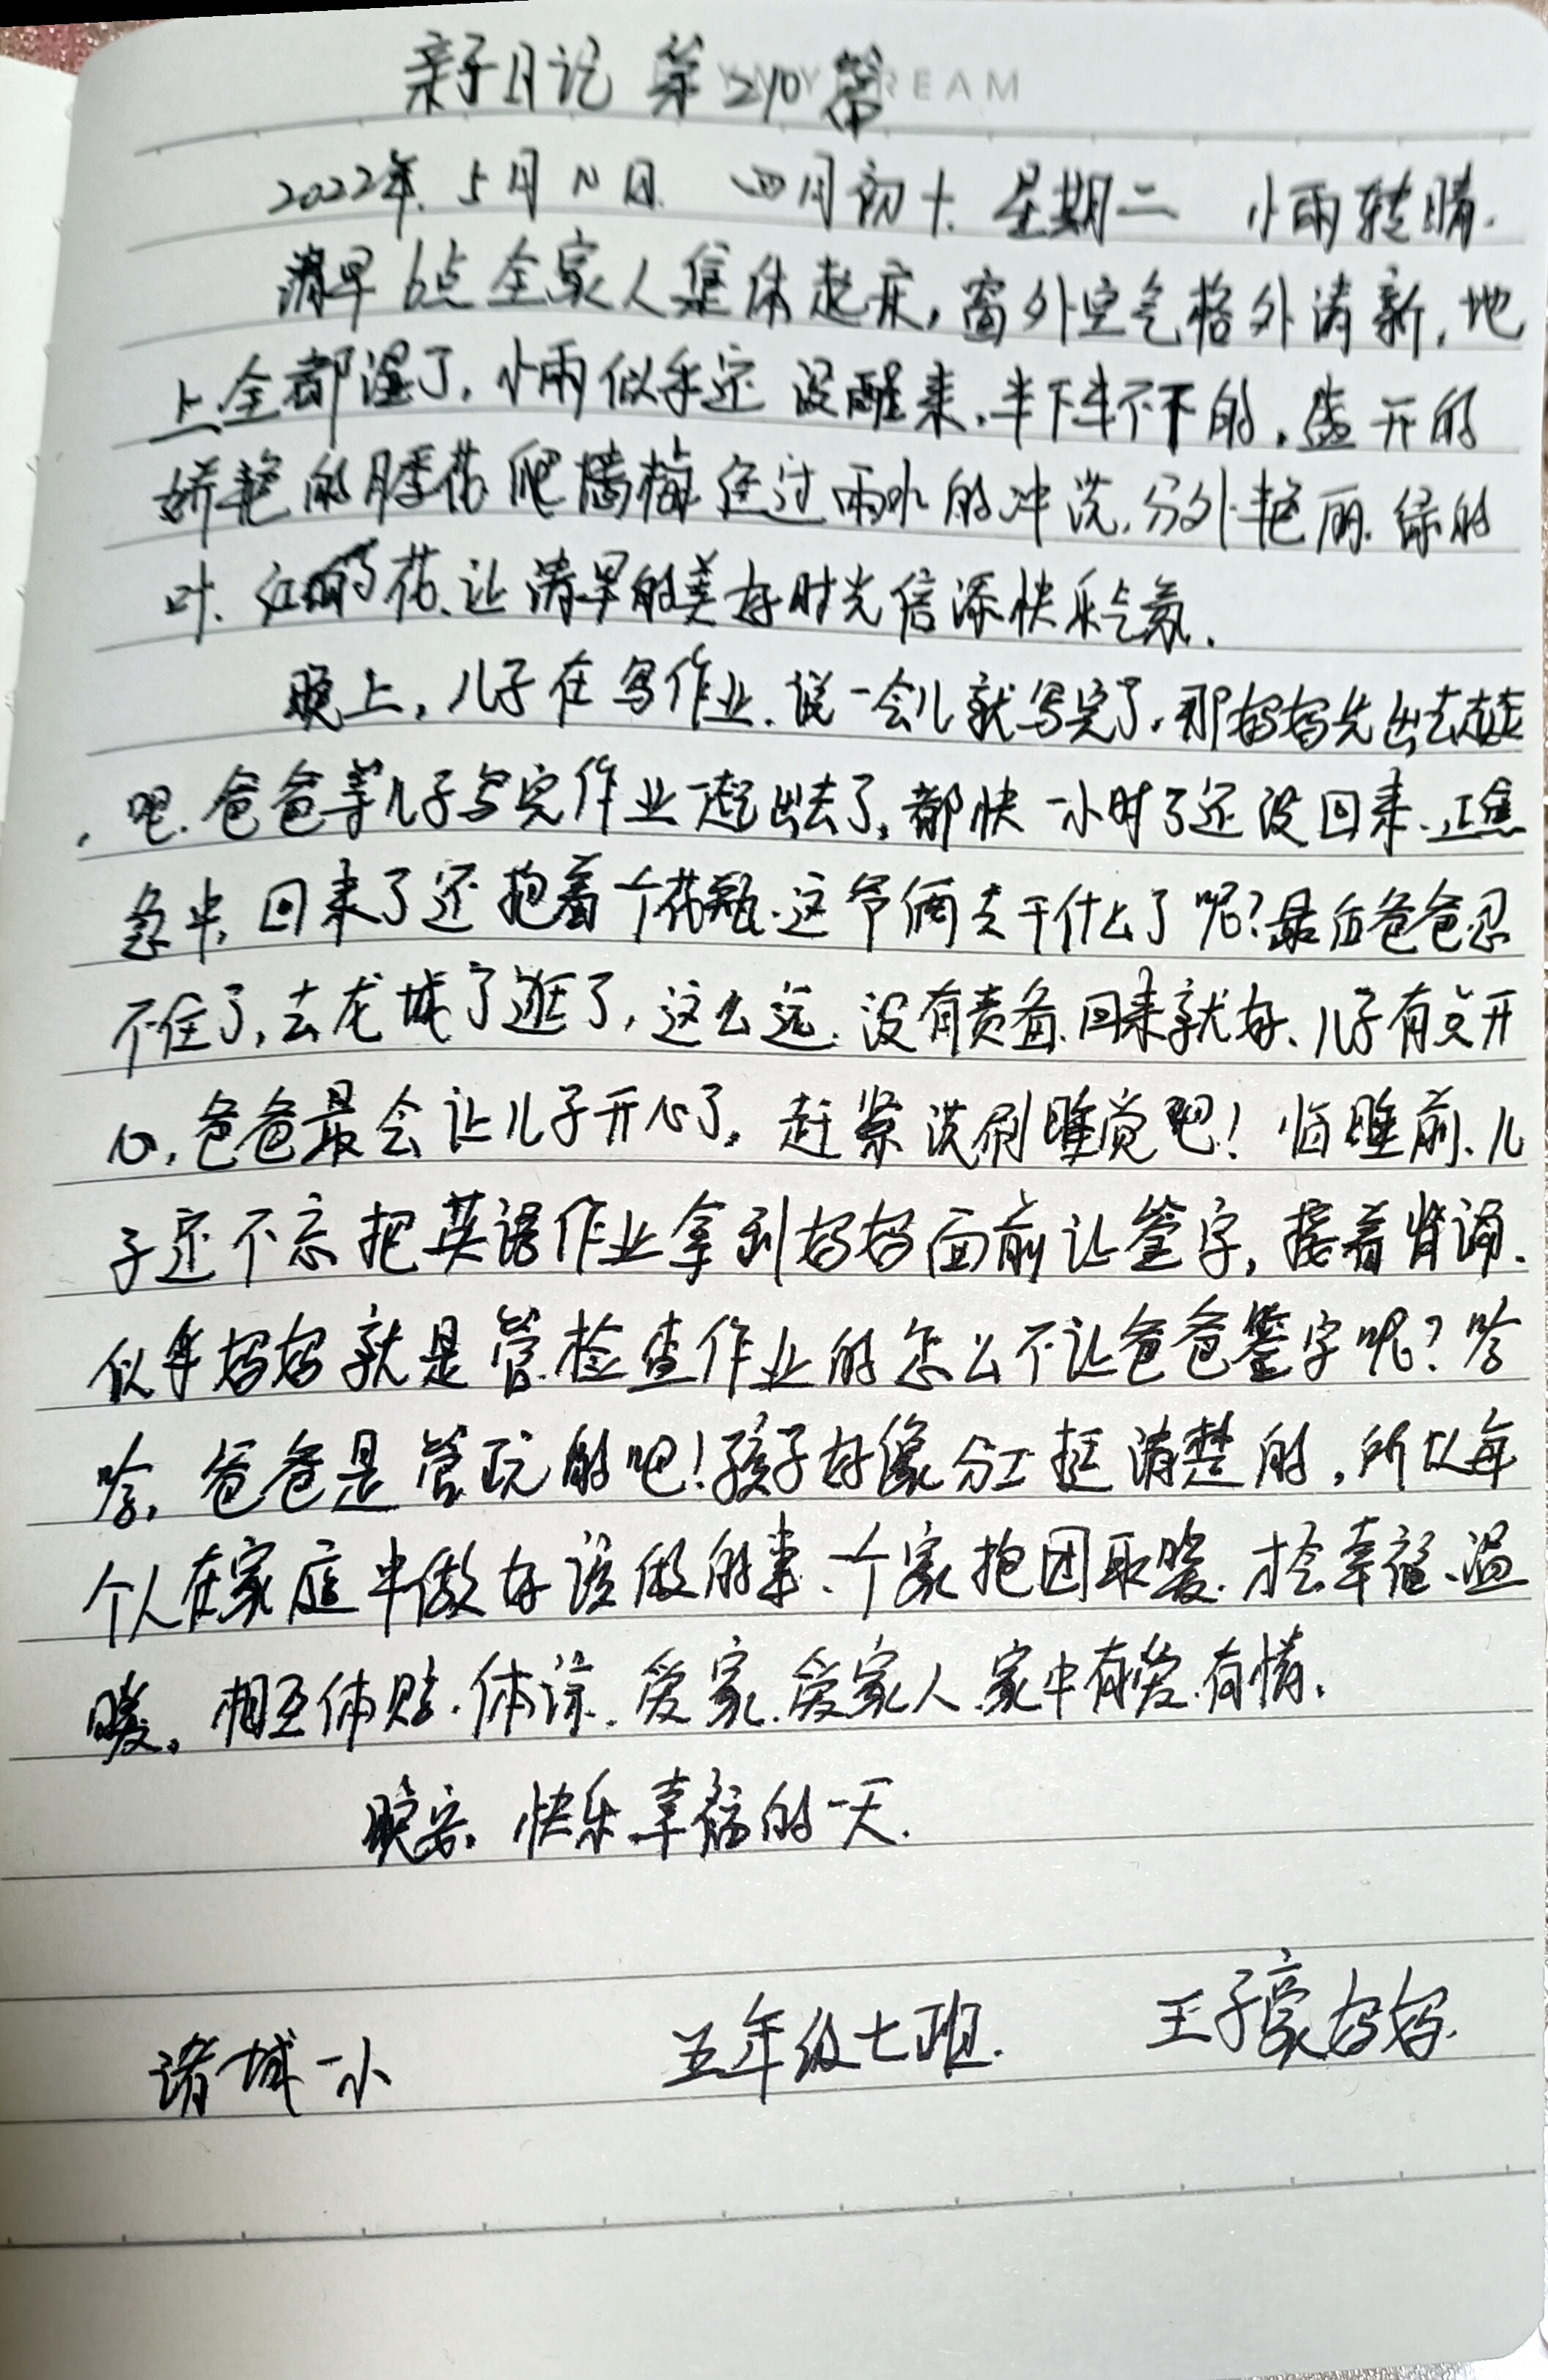 亲子日记 第210篇
2022年.5月11日 四月初十.星期二 小雨转晴.
清早6点全家人集体起床,窗外空气格外清新,地
上全都湿了,小雨似乎还没醒来,半下半不下的,盛开的
娇艳的月季花爬墙梅经过雨水的冲洗,分外艳丽.绿的
叶、红的花、让清早的美好时光倍添快乐气氛.
晚上,儿子在写作业.说一会儿就写完了,那妈妈先出去走走
,吧.爸爸等儿子写完作业一起出去了,都快一小时了还没回来.正焦
急中,回来了还抱着一个花瓶.这爷俩去干什么了呢?最后爸爸忍
不住了,去龙城了逛了,这么远.没有责备.回来就好、儿子有点开
心,爸爸最会让儿子开心了。赶紧洗刷睡觉吧!临睡前、儿
子还不忘把英语作业拿到妈妈面前让签字,接着背诵.
似乎妈妈就是管检查作业的怎么不让爸爸签字呢?哈
哈,爸爸是管玩的吧!孩子好像分工挺清楚的,所以每
个人在家庭中做好该做的事、一个家抱团取暖.才会幸福、温
暖。相互体贴.体谅.爱家.爱家人.家中有爱.有情.
晚安.快乐幸福的一天.
诸城一小 五年级七班. 王子豪妈妈.